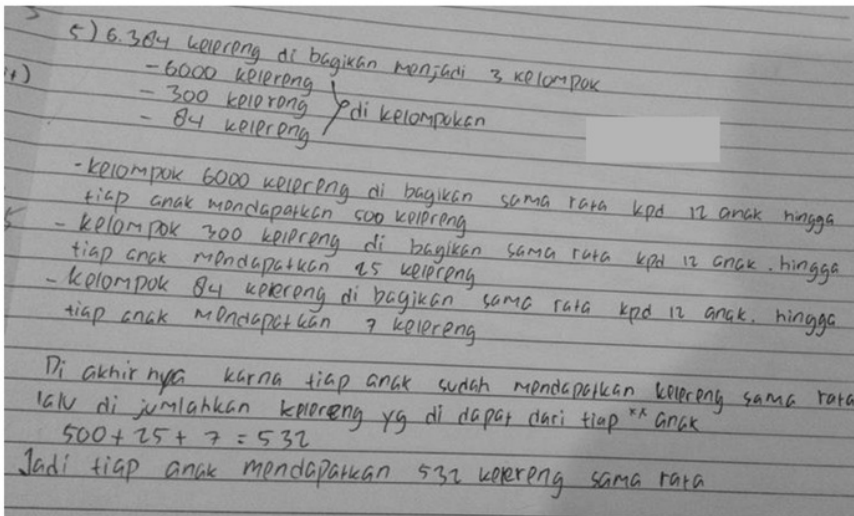 5) 6.384 kelereng di bagikan menjadi 3 kelompok
- 6000 kelereng
- 300 kelereng
di kelompokan
- 84 kelereng
- kelompok 6000 kelereng di bagikan sama rata kpd 12 anak hingga
tiap anak mendapatkan 500 kelereng
- kelompok 300 kelereng di bagikan sama rata kpd 12 anak. hingga
tiap anak mendapatkan 25 kelereng
- kelompok 84 kelereng di bagikan sama rata kpd 12 anak. hingga
tiap anak mendapatkan 7 kelereng
Di akhirnya karna tiap anak sudah mendapatkan kelereng sama rata
lalu di jumlahkan kelereng yg di dapat dari tiap** anak
500 + 25 + 7 = 532
Jadi tiap anak mendapatkan 532 kelereng sama rata